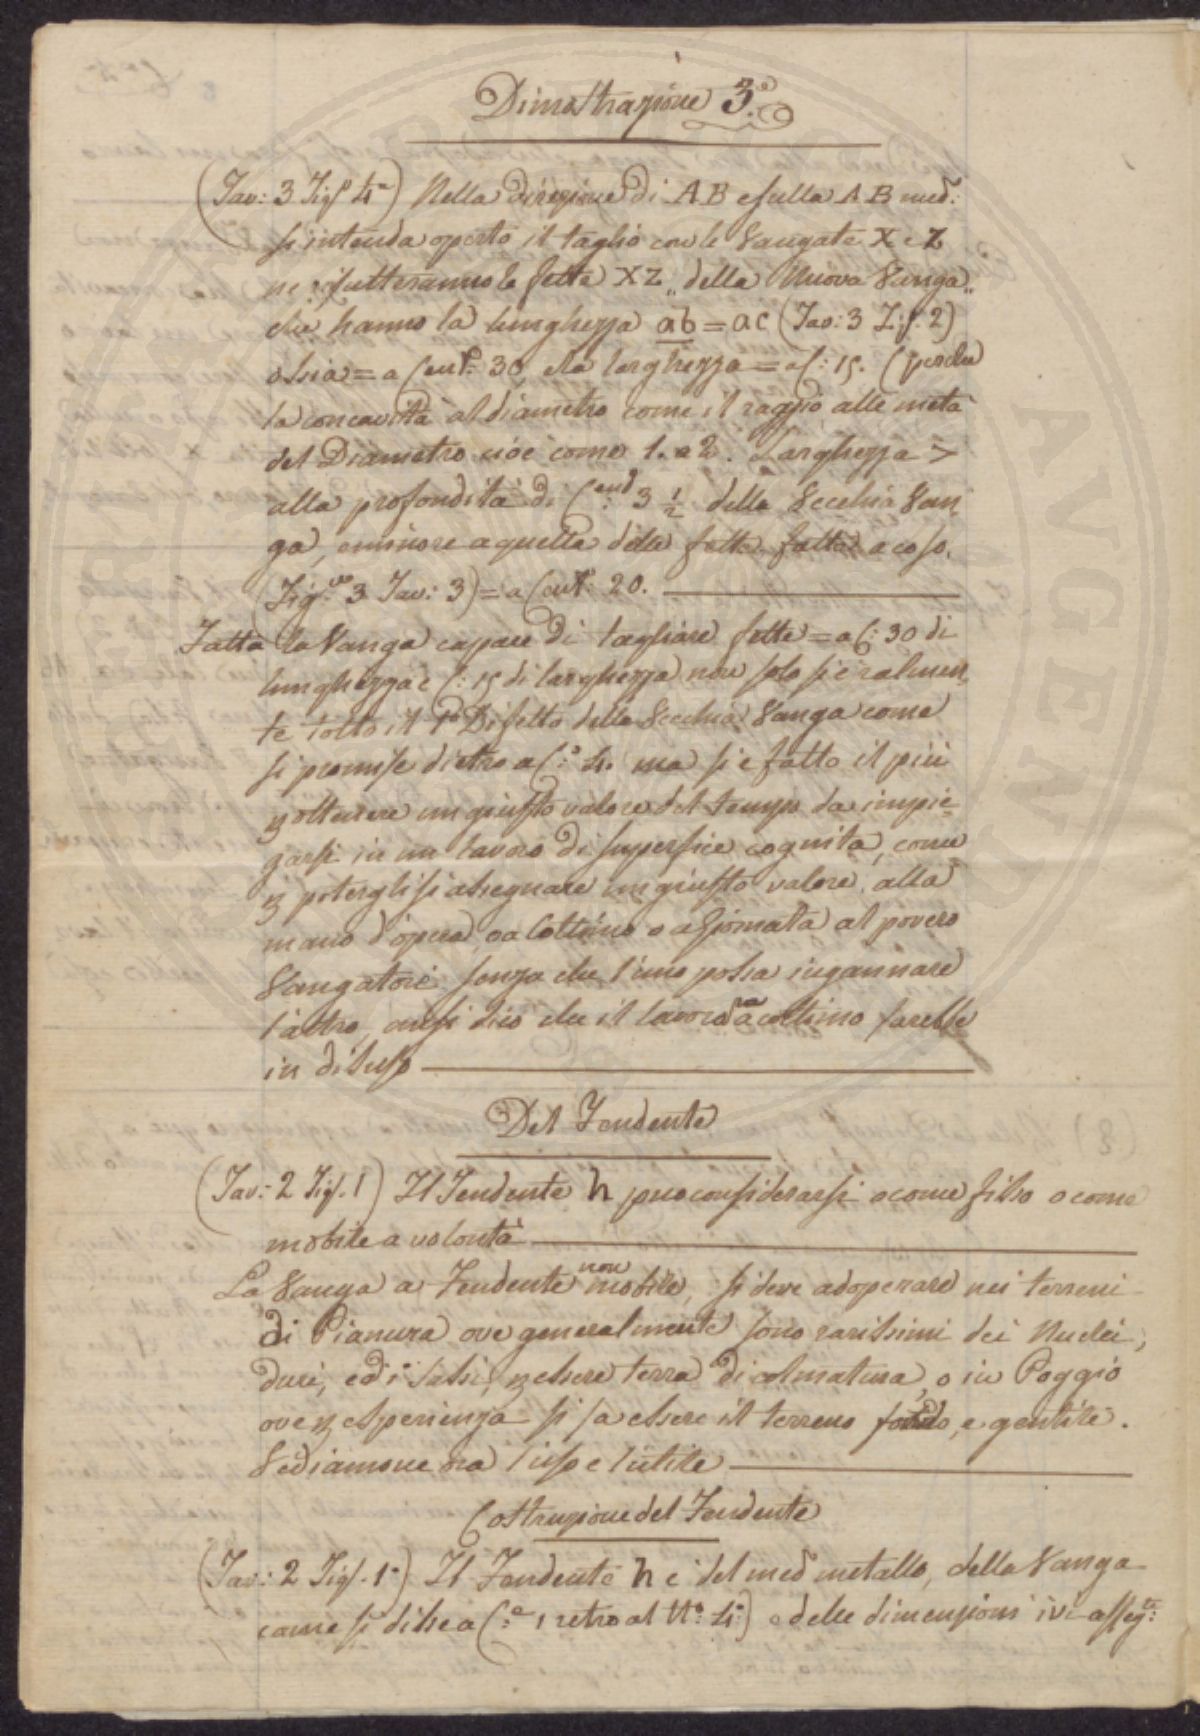 Dimostrazione 3.a
(Tav: 3 Figa 4a) Nella direzione di AB e sulla AB med:
si intenda aperto il taglio con le Vangate X e Z
ne risulteranno le fette XZ „ della Nuova Vanga„
che hanno la lunghezza ab = ac (Tav: 3 Fig. 2)
ossia = a Cent: 30, e la larghezza = a C: 15. (perche
la concavità al diametro come il raggio alle metà
del Diametro cioè come 1. a 2. Larghezza >
alla profondità di Cent: 3 1/2 della Vecchia Van,
ga, e minore a quella delle fette fatte a coso.
(Fig: 3 Tav: 3) = a Cent: 20.
Fatta la Vanga capace di tagliare fette = a C: 30 di
lunghezza e C: 15 di larghezza non solo si è realmen,
te tolto il 1o Difetto della Vecchia Vanga come
si promise dietro a C: 4. ma si è fatto il più
p ottenere un giusto valore del tempo da impie=
garsi in un lavoro di superficie cognita, come
p potergli si assegnare un giusto valore alla
mano d'opera, o a Cottimo o a Giornata al povero
Vangatore senza che l'uno possa ingannare
l'altro, anzi dico che il lavoro a cottimo sarebbe
in disuso
Del Fendente
(Tav: 2 Fig. 1) Il Fendente h puo considerarsi o come fisso o come
mobile a volontà
La Vanga a Fendente non mobile, si deve adoperare nei terreni
di Pianura ove generalmente sono rarissimi dei Nuclei,
duri, e di Sassi, p essere terra di colmatura, o in Poggio
ove p esperienza si sa essere il terreno, e gentile.
Vediamone ora l'uso e l'utile
Costruzione del Fendente
(Tav: 2 Fig. 1a) Il Fendente h è del med metallo, della Vanga
come si disse a C: 1 retro al No: 4:) e delle dimensioni ivi asseg:te